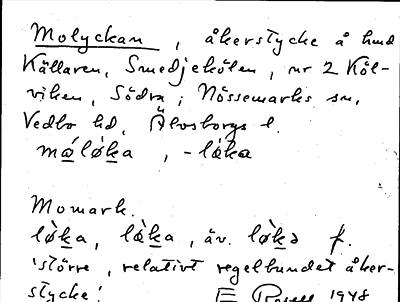 Molyckan, åkerstycke å hmd
Källaren, Smedjekölen, nr 2 Köl-
viken, Södra; Nössemarks sn,
Vedbo hd, Älvsborgs l.
målø̀ka, -lø̀ka
Momark.
lø̀ka, lø̀ka, äv. lø̀kə f.
'större, relativt regelbundet åker-
stycke'. E Rosell 1948